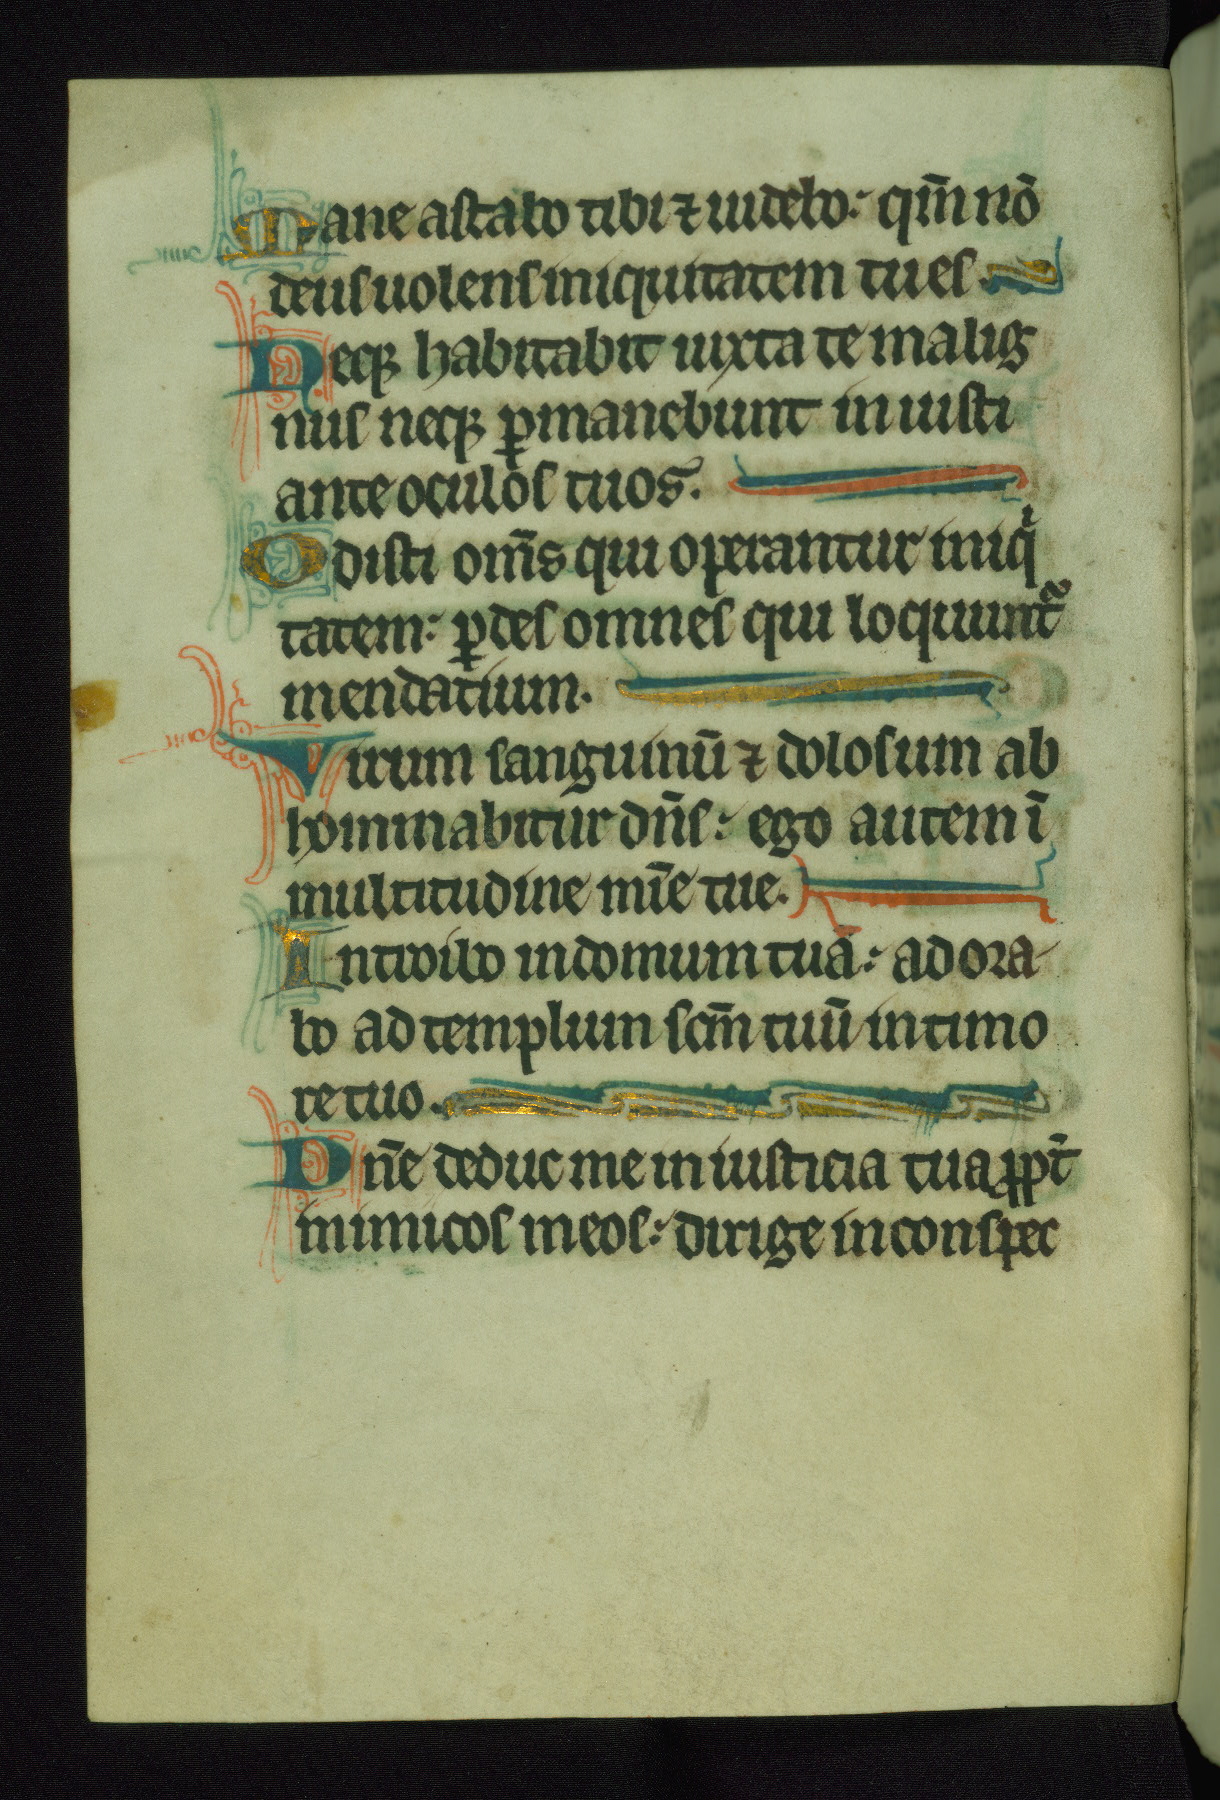 Mane astabo tibi ⁊ uidebo: qm̄ nō
deus uolens iniquitatem tu es.
Neqꝫ habitabit iuxta te malig
nus neqꝫ ꝑmanebunt iniusti
ante oculos tuos.
Odisti om̄s qui operantur iniqͥ
tatem: ꝑdes omnes qui loquunt᷑
mendatium.
Virum sanguinū ⁊ dolosum ab
hominabitur dn̄s: ego autem ī
multitudine mīe tue.
Introibo in domum tuā: adora
bo ad templum scm̄ tuū in timo
re tuo.
Dn̄e deduc me in iusticia tua ꝓpt̄
inimicos meos: dirige in conspec